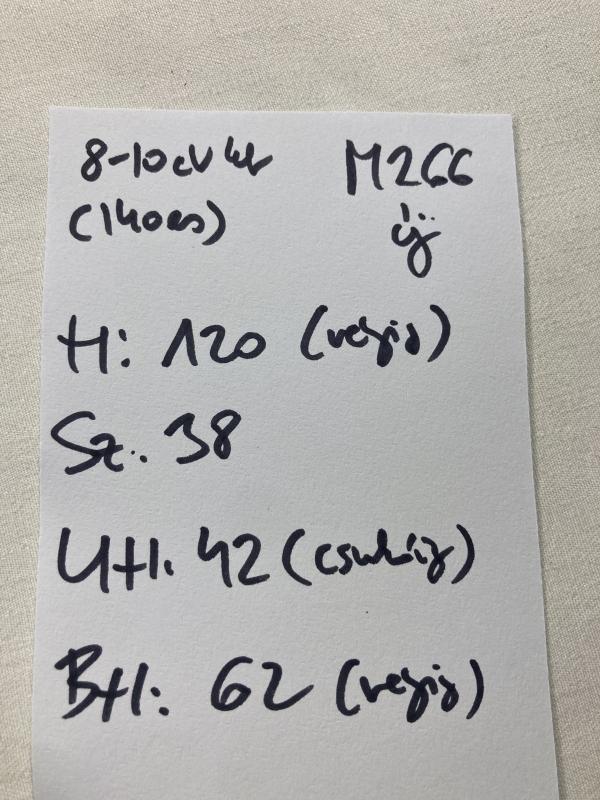 8-10 év kb
(140es)
M266
új
H: 120 (végig)
Sz.: 38
UH: 42 (csuklóig)
BH: 62 (végig)